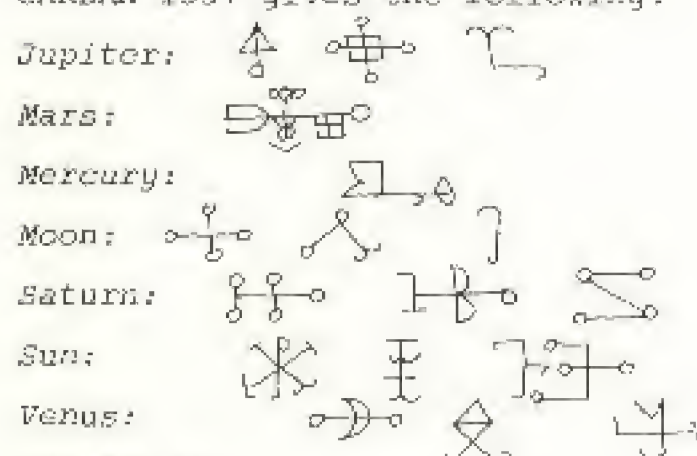 gives the following:
Jupiter:
Mars:
Mercury:
Moon:
Saturn:
Sun:
Venus: